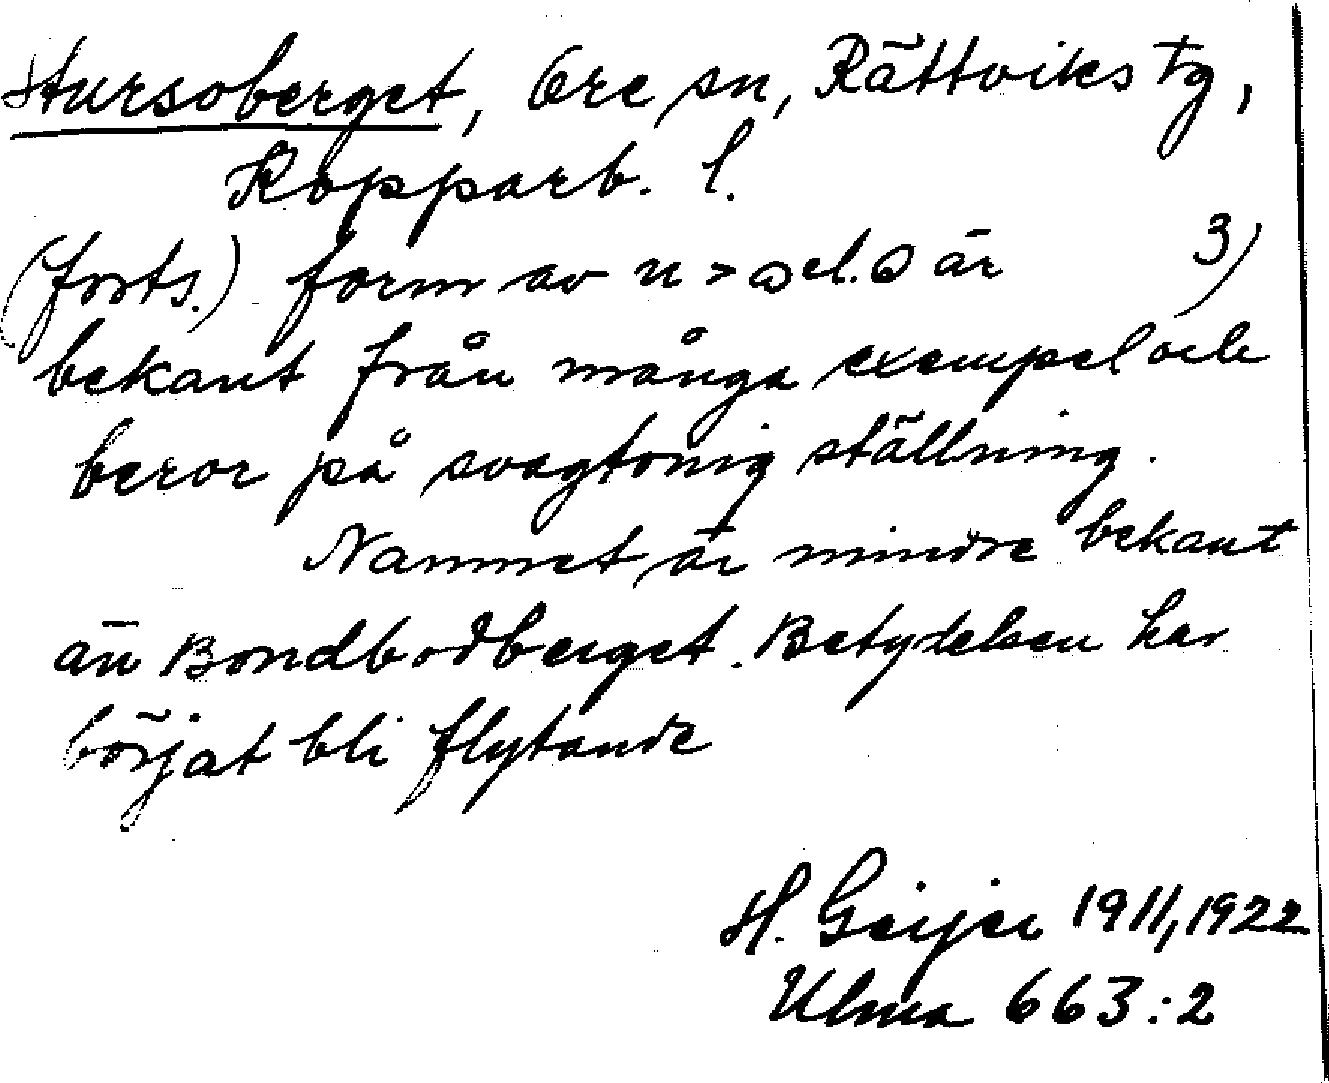 Hursoberget, Ore sn, Rättviks tg,
Kopparb. l.
(forts.) form av u > ɷ el. ɷ är 3)
bekant från många exempel och
beror på svagtonig ställning.
Namnet är mindre bekant
än Bondbodberget. Betydelsen har
börjat bli flytande
H. Geijer 1911, 1922
Ulma 663:2